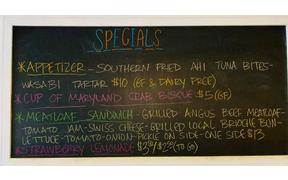 SPECIALS
*APPETIZER - SOUTHERN FRIED AHI TUNA BITES-
WASABI TARTAR $10 (GF & DAIRY FREE)
*CUP OF MARYLAND CRAB BISQUE $5 (GF)
*MEATLOAF SANDWICH - GRILLED ANGUS BEEF MEATLOAF-
TOMATO JAM-SWISS CHEESE-GRILLED LOCAL BRIOCHE BUN-
LETTUCE-TOMATO-ONION-PICKLE ON SIDE-ONE SIDE $13
*STRAWBERRY LEMONADE (TO GO)